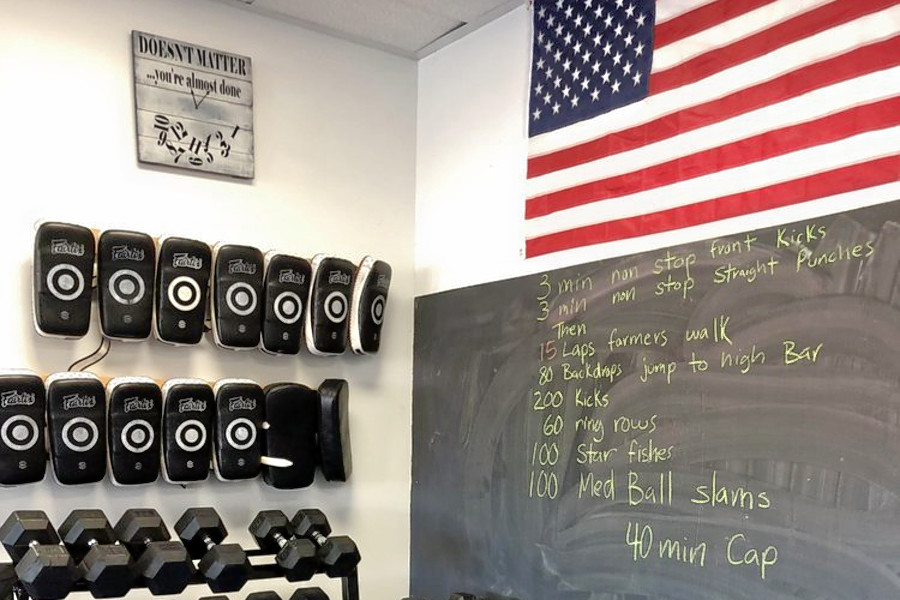 DOESN'T MATTER
...you're almost done
Fairtex
Fairtex
Fairtex
Fairtex
Fairtex
Fairtex
Fairtex
Fairtex
Fairtex
Fairtex
Fairtex
Fairtex
3 min non stop front Kicks
3 min non stop straight Punches
Then
15 Laps farmers walk
80 Backdrops jump to high Bar
200 Kicks
60 ring rows
100 Star fishes
100 Med Ball slams
40 min Cap